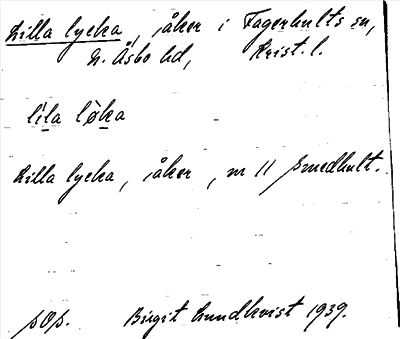 Lilla lycka, åker i Fagerhults sn,
N. Åsbo hd, Krist. l.
lila løka
Lilla lycka, åker, m 11 Smedhult.
pOp. Birgit Lundkvist 1939.